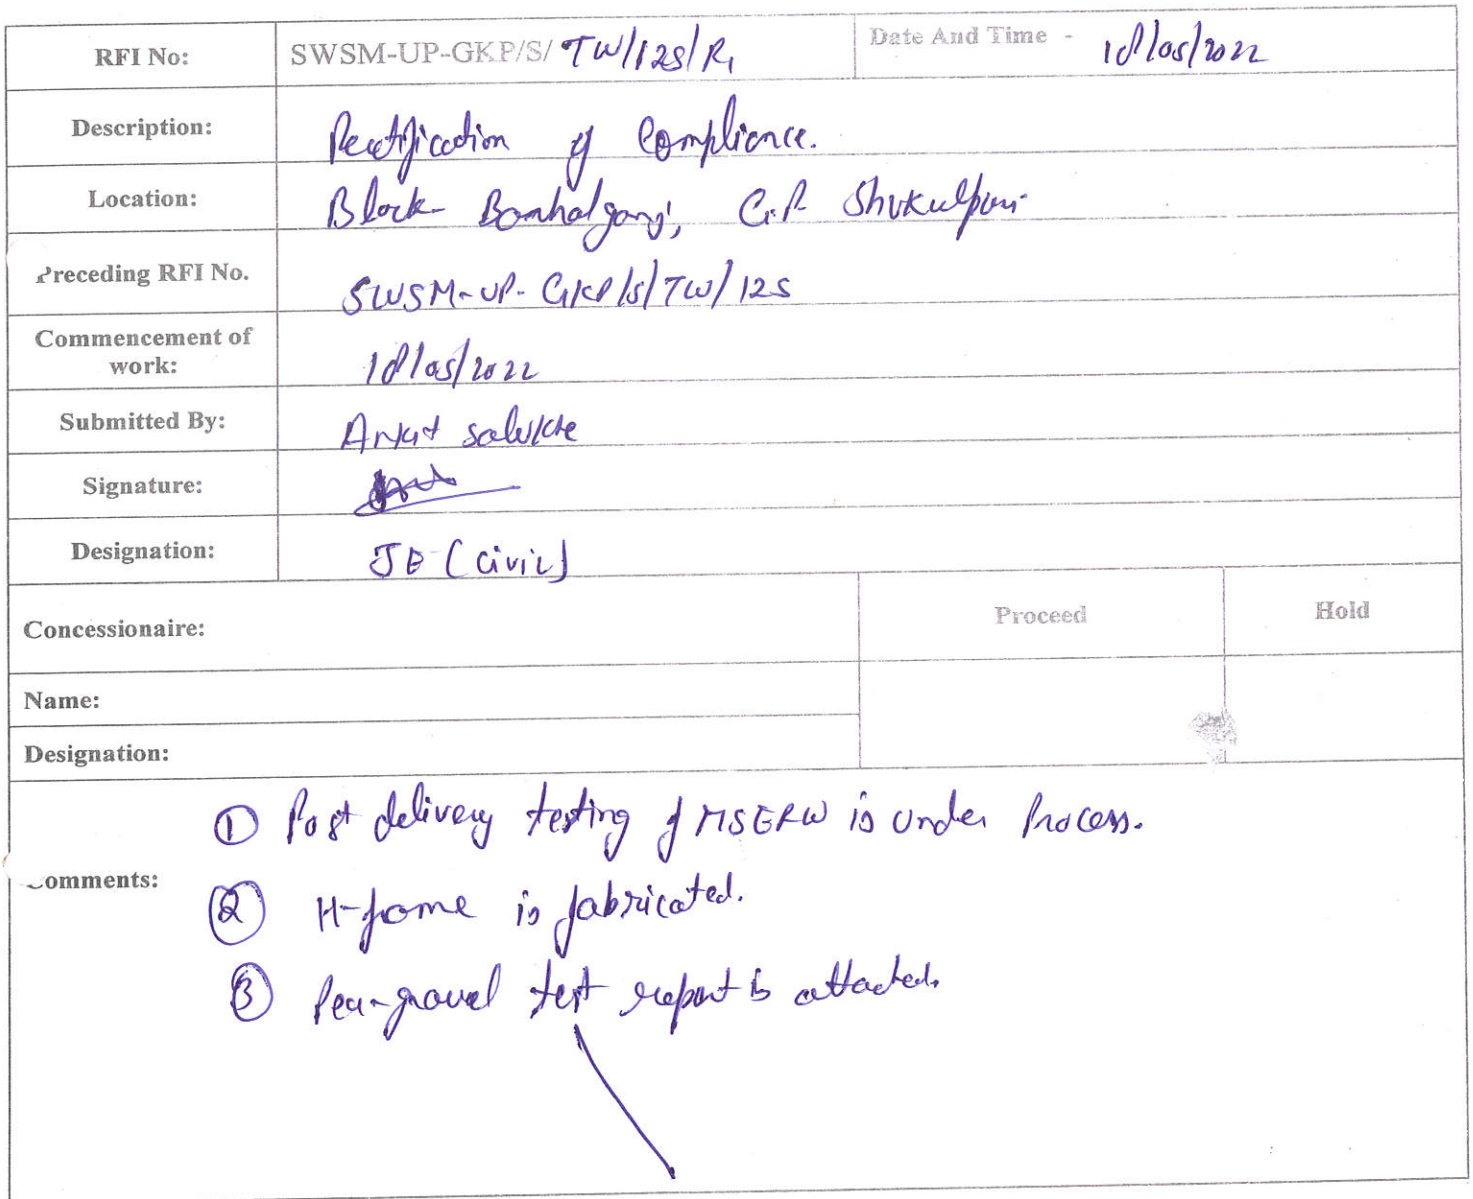 RFI No: SWSM-UP-GKP/S/ TW/125/R1 Date And Time - 18/05/2022
Description: Rectification of Compliance.
Location: Block- Barhalganj, G.P. Shukulpuri
Preceding RFI No. SWSM-UP-GKP/S/TW/125
Commencement of
work: 18/05/2022
Submitted By: Ankit
Signature:
Designation: JE (Civil)
Concessionaire: Proceed Hold
Name:
Designation:
① Post delivery testing of MSERW is under Process.
Comments:
② H-frame is fabricated.
③ Pea-gravel test report is attached.